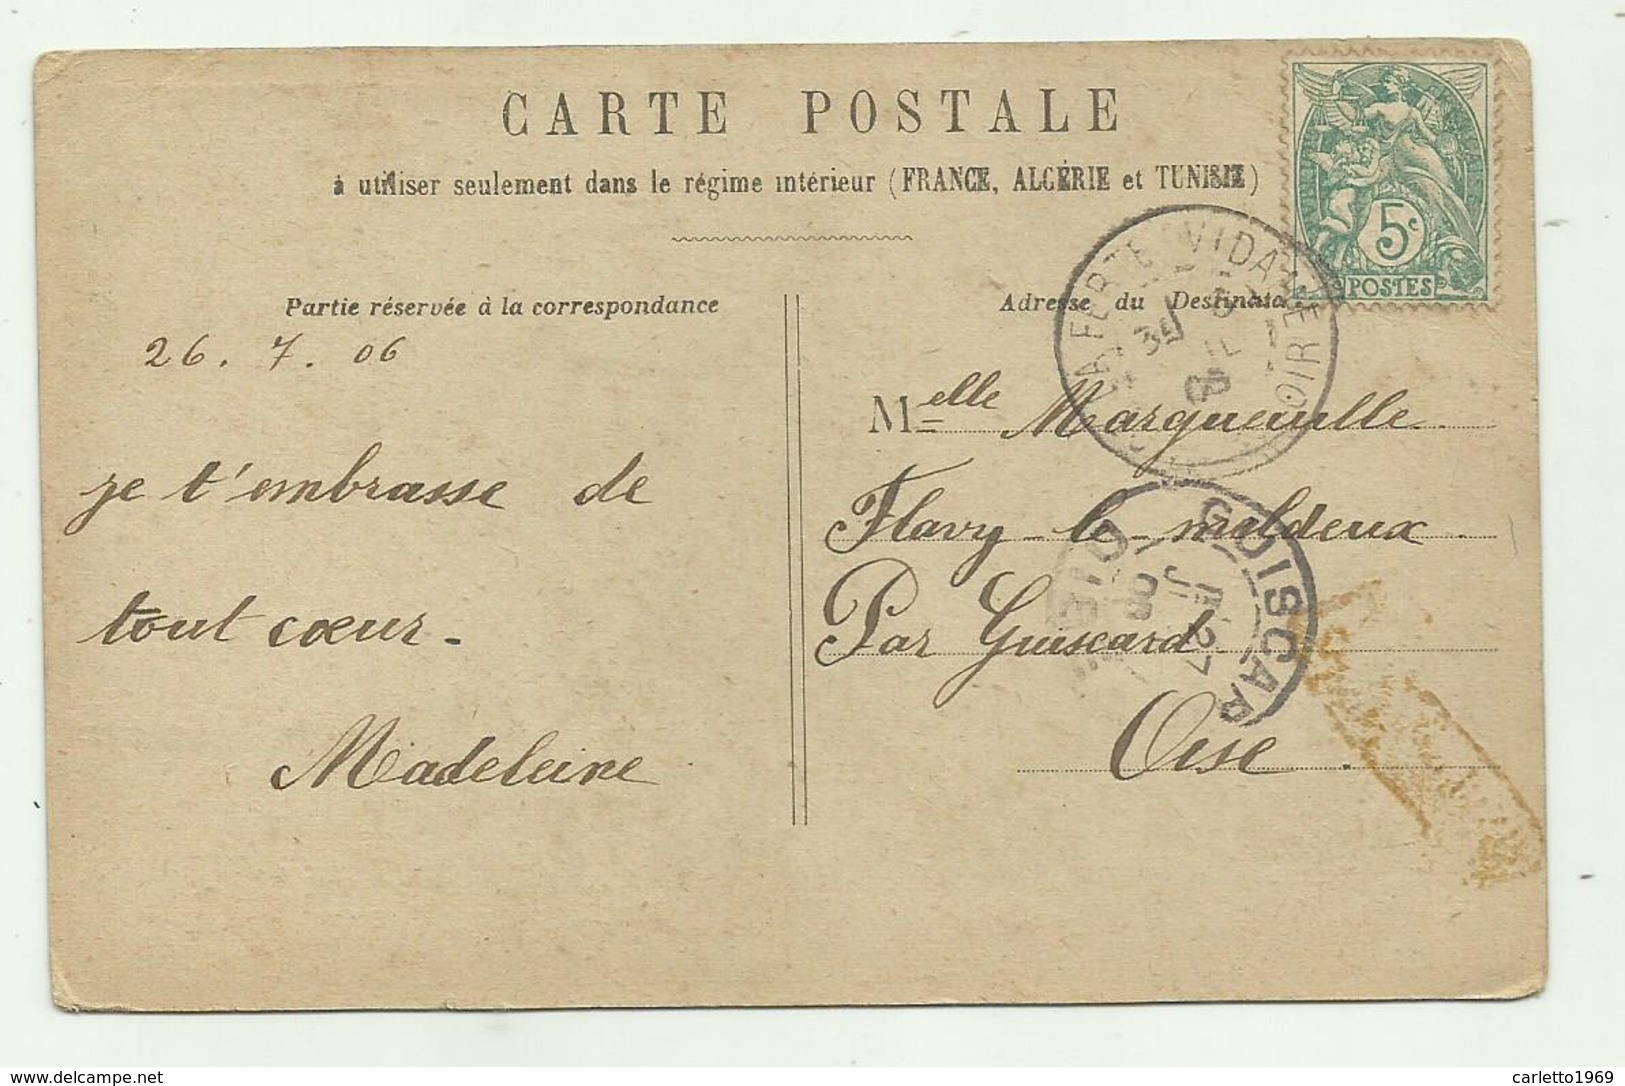 CARTE POSTALE
à utiliser seulement dans le régime intérieur (FRANCE, ALGÉRIE et TUNISIE)
Partie réservée à la correspondance
26. 7. 06
je t'embrasse de
tout cœur.
Madeleine
5c
POSTES
LA FERTE VIDAME
LOIR ET
Adresse du
Melle
Flavy-le-meldeux.
Par Guiscard
Oise.
GUISCAR
OISE
27
www.delcampe.net
carletto1969